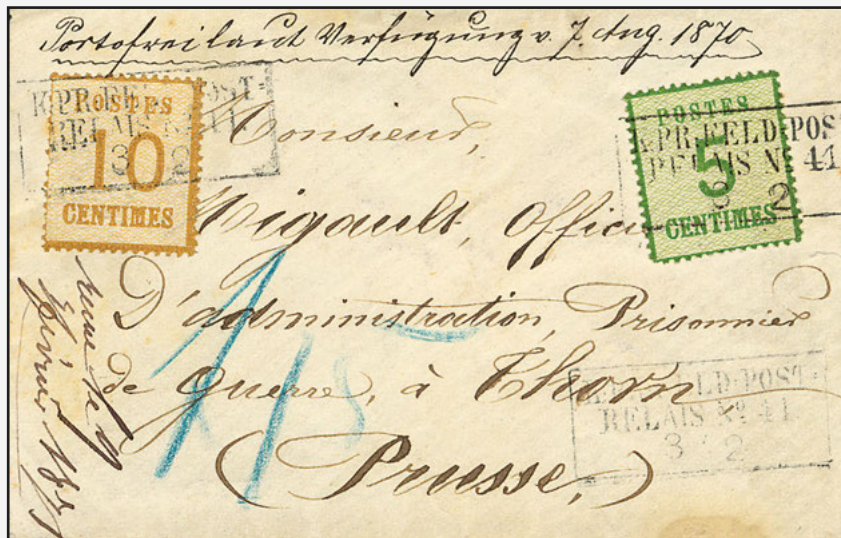 Portofrei laut Verfügung v. 7. Aug. 1870
POSTES
10
CENTIMES
K.PR.FELD-POST-
RELAIS No 41
3 2
POSTES
5
CENTIMES
K.PR.FELD-POST
RELAIS No 41
3 2
Monsieur,
Migault, Officier
D'administration, Prisonnier
de guerre, à Thorn
(Prusse,)
K.PR.FELD-POST-
RELAIS No 41
3 2
le 9